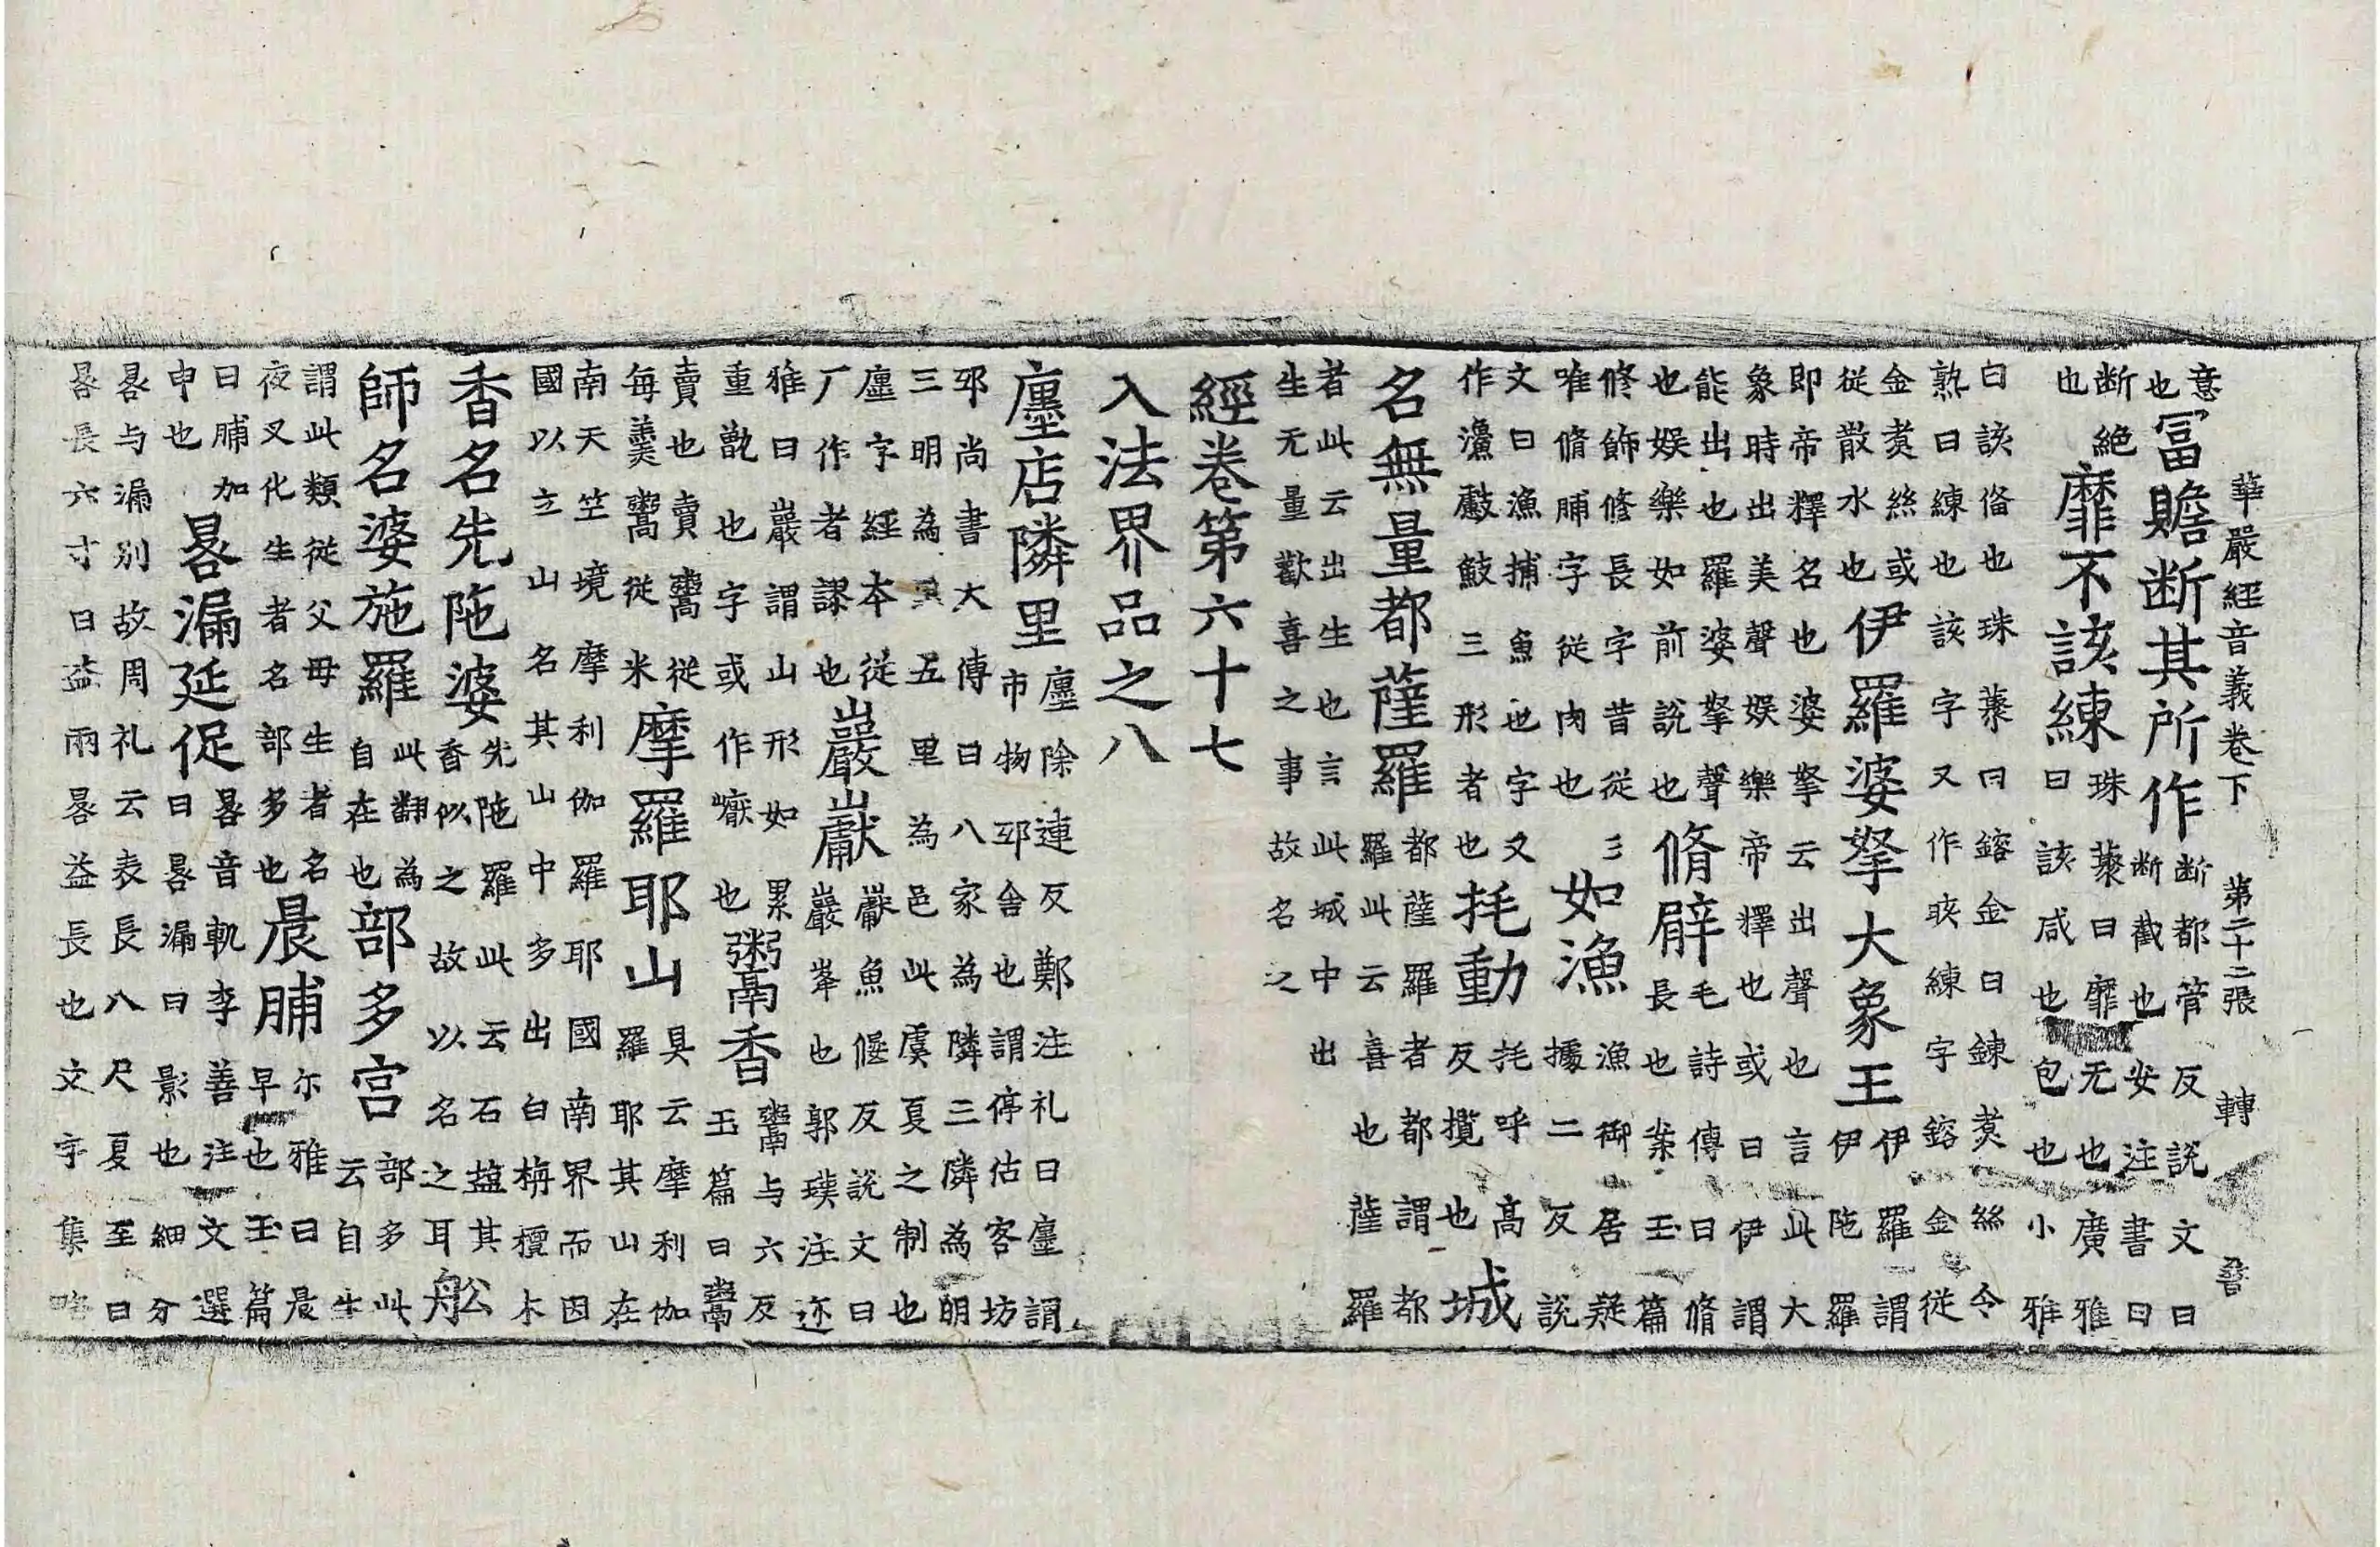 華嚴經音義卷下 第二十二張 轉
意
也
冨贍断其所作
断都管反說文曰
断截也安注書曰
断絕
也
靡不該練
珠藂曰靡无也廣雅
曰該咸也包也小雅
曰該俻也珠藂曰鎔金曰鍊煑絲令
熟曰練也該字又作晐練字鎔金從
金煑絲或
從散水也
伊羅婆拏大象王
伊羅謂
伊陁羅
即帝釋名也婆拏云出聲也言此大
象時出美聲娛樂帝釋也或曰伊謂
能出也羅婆拏聲
也娛樂如前說也
脩臂
毛詩傳曰脩
長也案玉篇
修飾修長字昔從彡
唯脩脯字從肉也
如漁
漁御居疑
據二反說
文曰漁捕魚也字又
作三形者也
秏動
秏呼高
反攪也
城
名無量都薩羅
都薩羅者都謂都
羅此云喜也薩羅
者此云出生也言此城中出
生无量歡喜之事故名之
經卷第六十七
入法界品之八
廛店隣里
廛除連反鄭注礼曰廛謂
市物邸舍也謂停估客坊
邸尚書大傳曰八家為隣三隣為明
三明為里五里為邑此虞夏之制也
廛字經本從
厂作者謬也
巖巘
巘魚偃反說文曰
巖峯也郭璞注迩
雅曰巖謂山形如累
重甑也字或作巘也
鬻香
鬻与六反
玉篇曰鬻
賣也賣鬻從
每羹鬻從米
摩羅耶山
具云摩利伽
羅耶其山在
南天竺境摩利伽羅耶國南界而因
國以立山名其山中多出白栴檀木
香名先陁婆
先陁羅此云石塩其
香似之故以名之耳
舩
師名婆施羅
此翻為
自在也
部多宫
部多此
云自生
謂此類從父母生者名
夜叉化生者名部多也
晨脯
尓雅曰晨
早也玉篇
曰脯加
申也
晷漏延促
晷音軌李善注文選
曰晷漏曰影也細分
晷与漏別故周礼云表長八尺夏至日
晷長六寸日益兩晷益長也文字集略